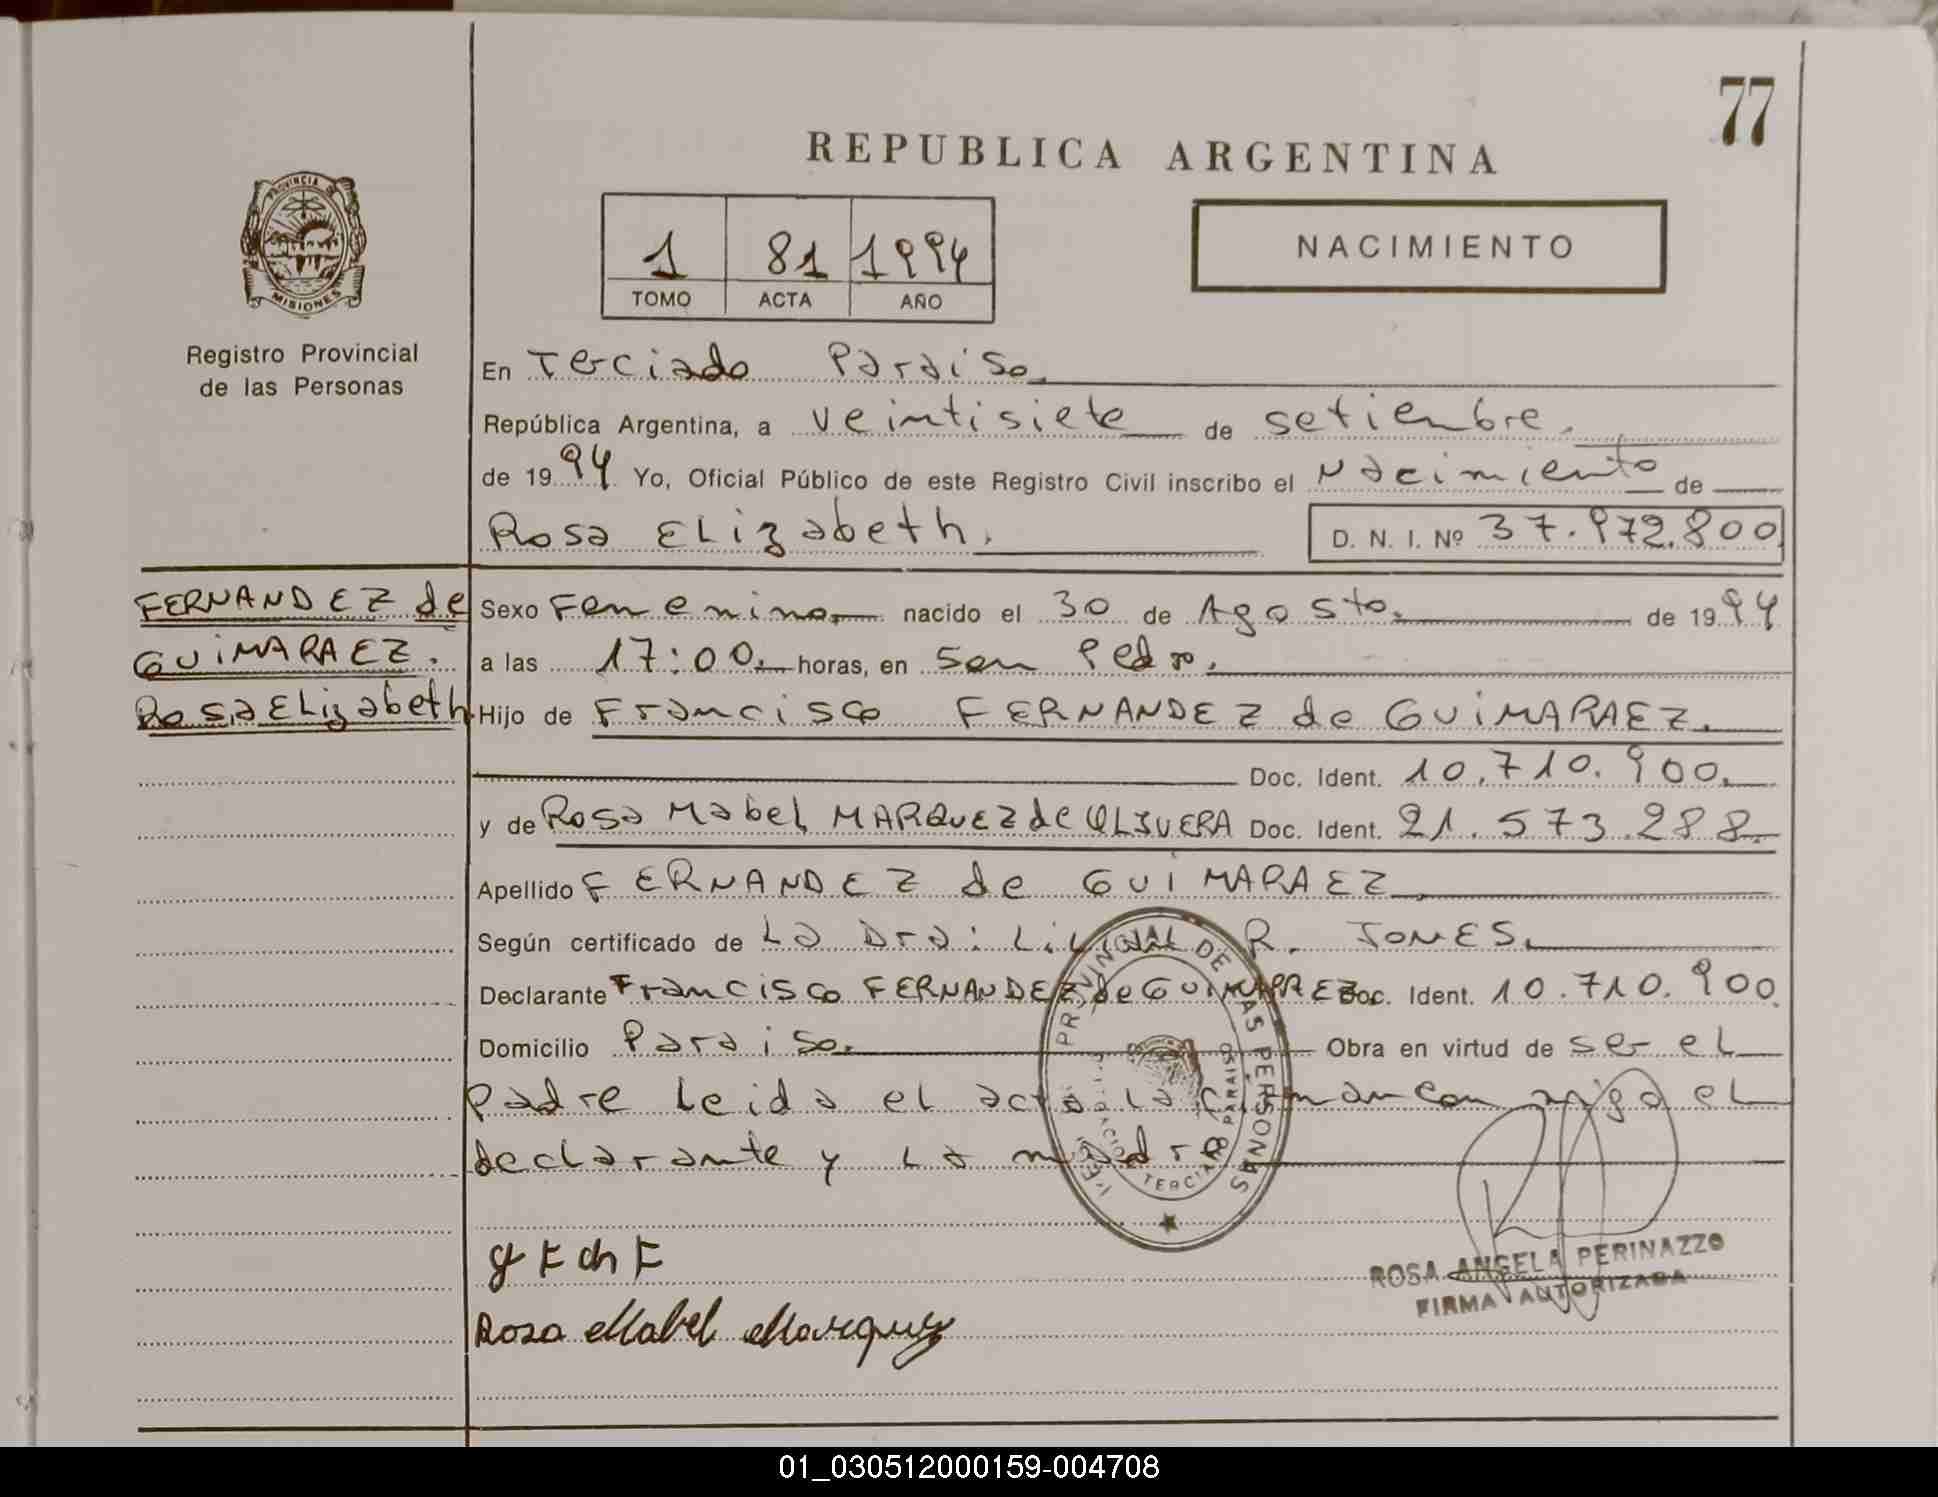 77
REPUBLICA ARGENTINA
PROVINCIA DE
MISIONES
Registro Provincial
de las Personas
1 81 1994
TOMO ACTA AÑO
NACIMIENTO
En Terciado Paraiso.
República Argentina, a veintisiete de setiembre.
de 1994 Yo, Oficial Público de este Registro Civil inscribo el Nacimiento de
Rosa Elizabeth. D. N. I. Nº 37.972.800
FERNANDEZ de
GUIMARAEZ.
Rosa Elizabeth
Sexo Femenino. nacido el 30 de Agosto. de 1994
a las 17:00. horas, en San Pedro.
Hijo de Francisco FERNANDEZ de GUIMARAEZ.
Doc. Ident. 10.710.900.
y de Rosa Mabel MARQUEZ de OLIVERA Doc. Ident. 21.573.288.
Apellido FERNANDEZ de GUIMARAEZ
Según certificado de La Dra: R. JONES.
Declarante Francisco FERNANDEZ de GUIMARAEZ Doc. Ident. 10.710.900.
Domicilio Paraiso. Obra en virtud de ser el
Padre Leida el acta la firman conmigo el
declarante y la madre
PROVINCIAL DE LAS PERSONAS
TERCIADO PARAISO
Rosa Mabel Marquez
ROSA ANGELA PERINAZZO
FIRMA AUTORIZADA
01_030512000159-004708